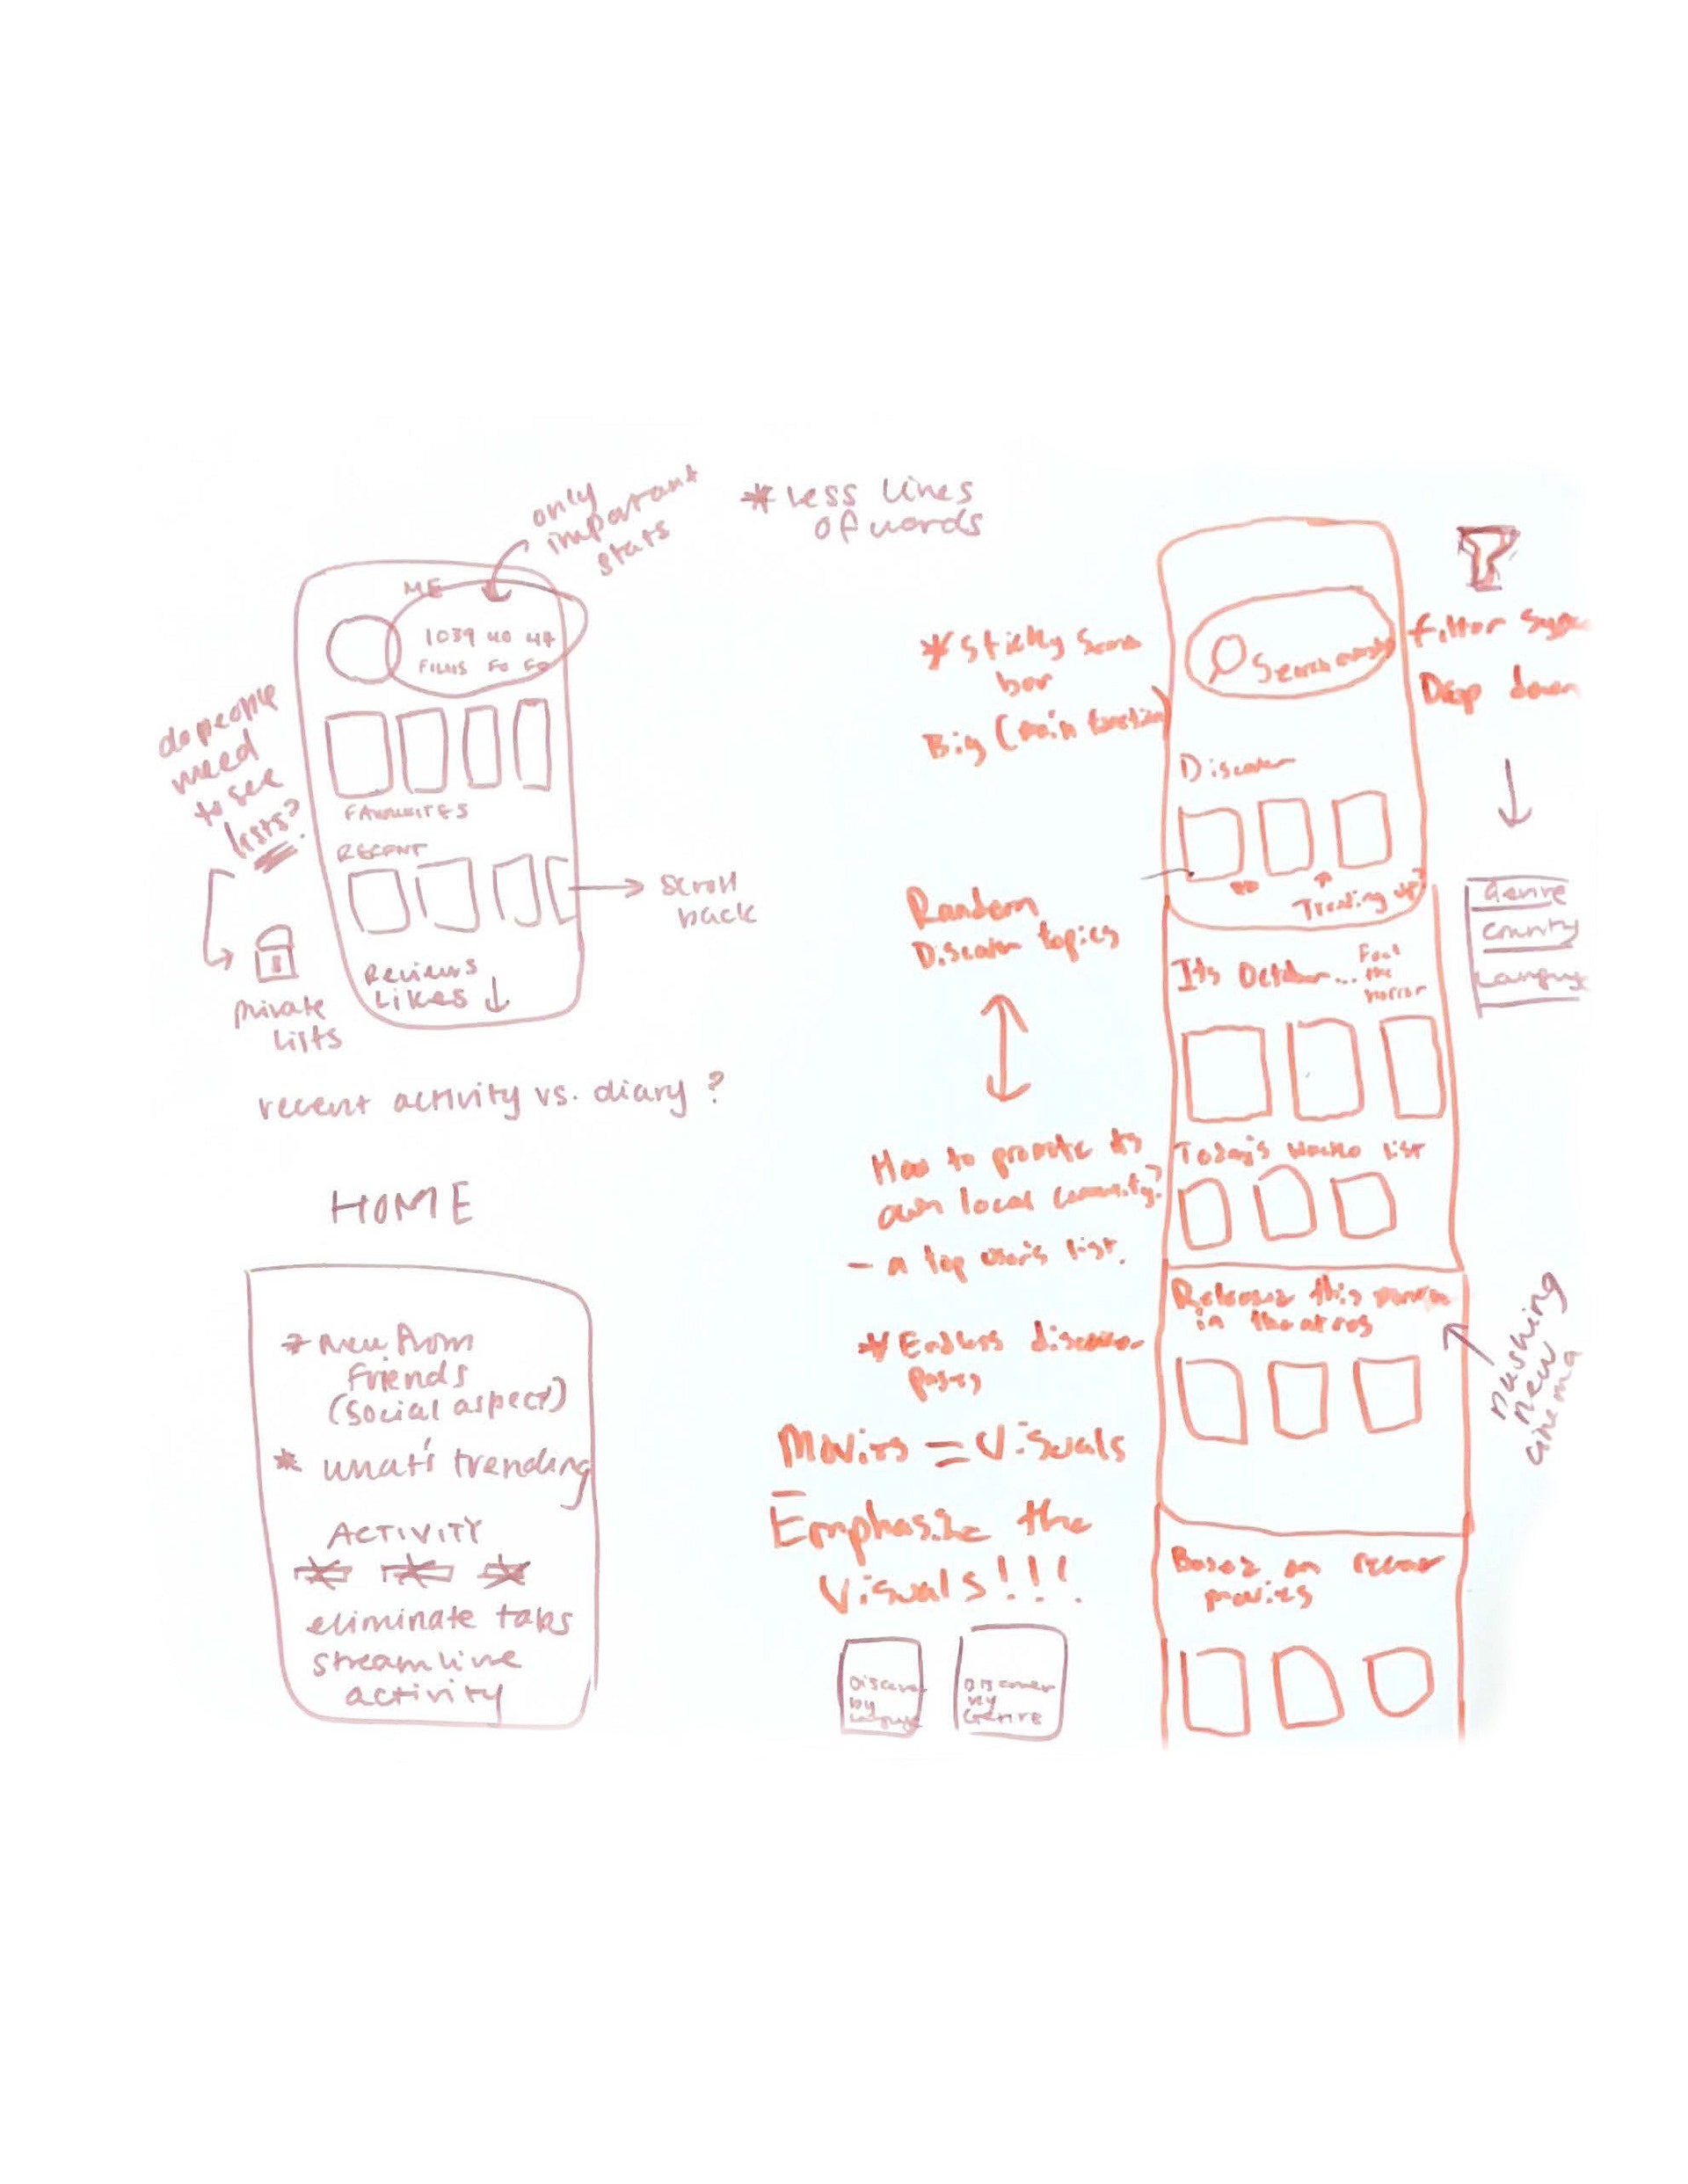 only
important
stats
* Less lines
of words
ME
1039 40 44
FILMS FO FO
FAVOURITES
RECENT
scroll
back
Reviews
Likes ↓
do people
need
to see
lists?
private
lists
recent activity vs. diary ?
HOME
* New from
Friends
(social aspect)
* what's trending
ACTIVITY
eliminate tabs
streamline
activity
* Sticky
bar
Big (main function)
Search
Filter
Drop down
Genre
Country
Language
Discover
Trending
Random
Discover topics
Its October...
the
horror
How to promote its
own local community?
- a top users list.
Today's list
* Endless discover
pages
Release this
in theatres
pushing
new
cinema
Movies = Visuals
Emphasize the
Visuals!!!
Discover
by
Language
Discover
by
Genre
Based on recent
movies